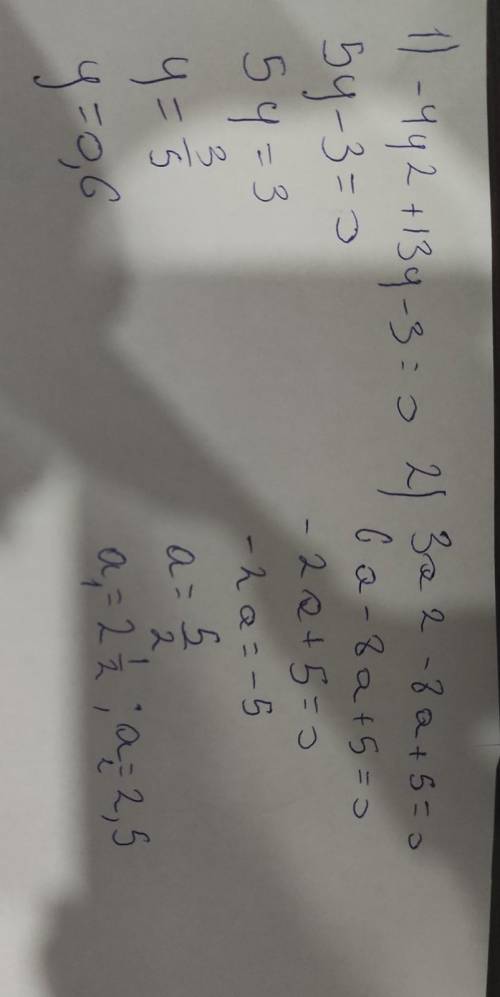 1) -4y2+13y-3=0
5y-3=0
5y=3
y=3/5
y=0,6
2) 3a2-8a+5=0
6a-8a+5=0
-2a+5=0
-2a=-5
a=5/2
a₁=2 1/2; a₂=2,5